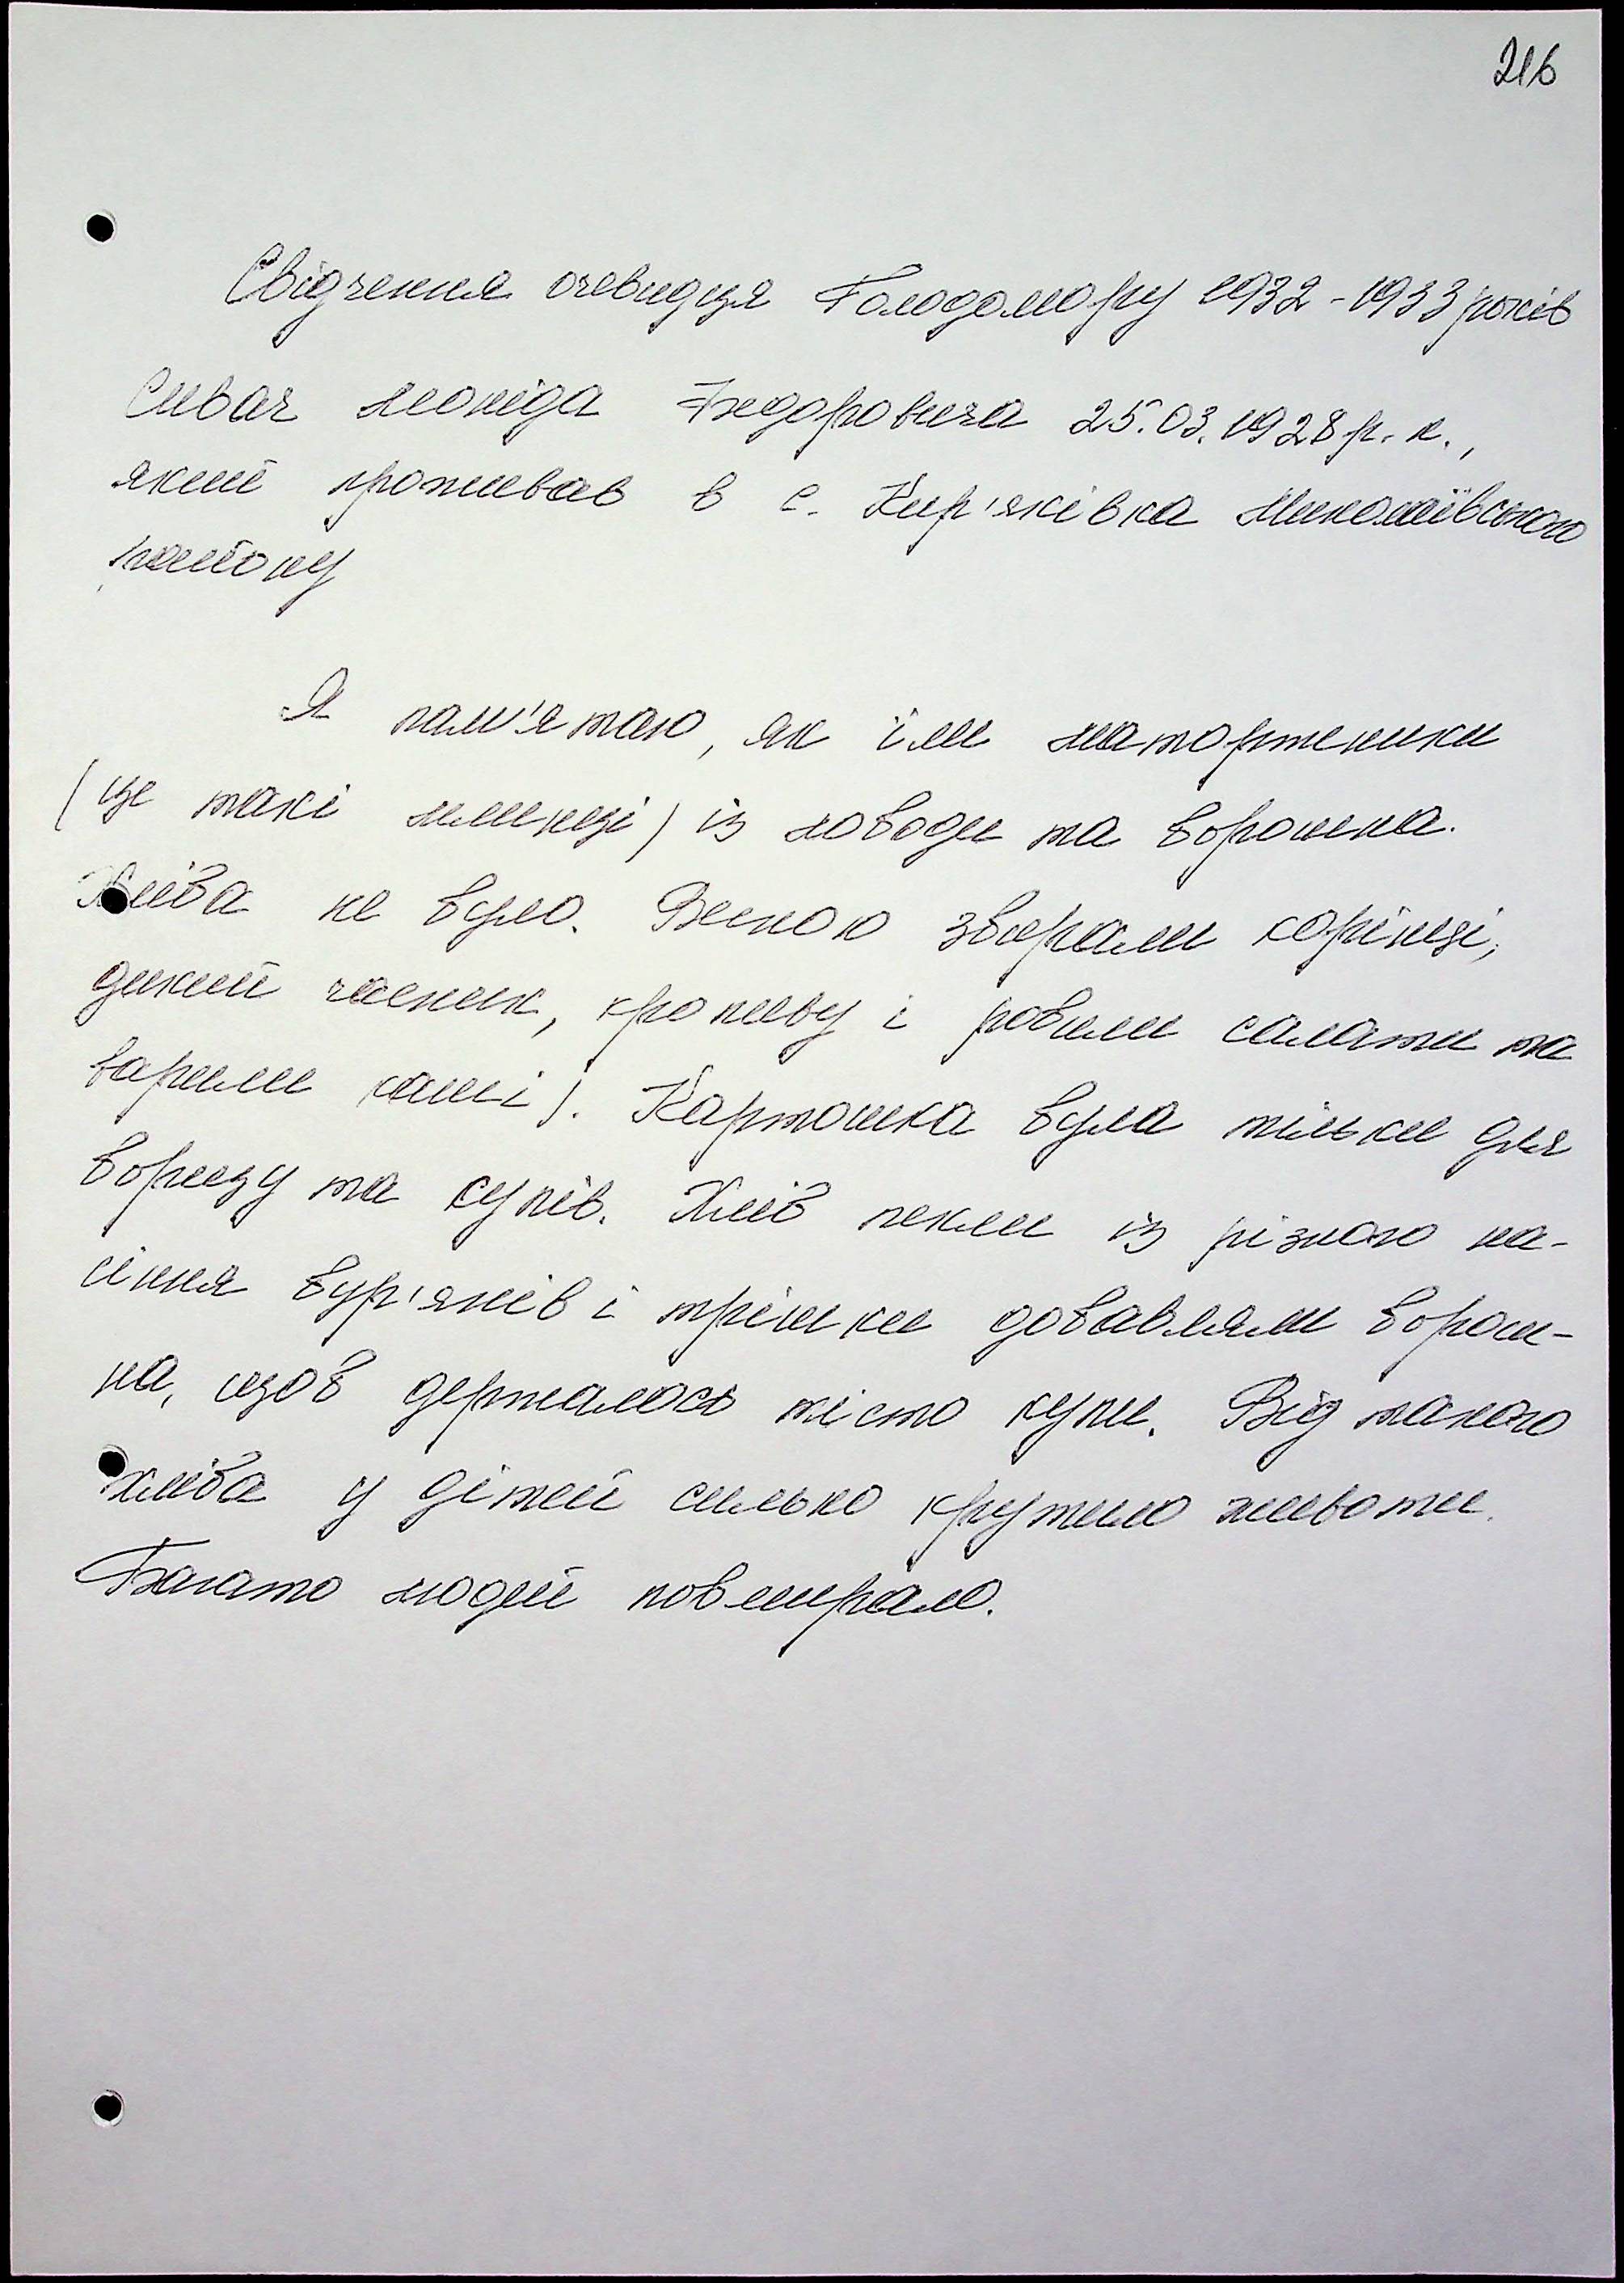 216
Свідчення очевидця Голодомору 1932-1933 років
Сивач Леоніда Федоровича 25.03.1928 р.н.,
який проживав в с. Кир'яківка Миколаївського
району
Я пам'ятаю, як їли маторженики
(це такі млинці) із лободи та борошна.
Хліба не було. Весною збирали корінці,
дикий часник, кропиву і робили салати та
варили каші). Картошка була тільки для
борщу та супів. Хліб пекли із різного на-
сіння бур'янів і трішки добавляли борош-
на, щоб держалось тісто купи. Від такого
хліба у дітей сильно крутило животи.
Багато людей повмирало.